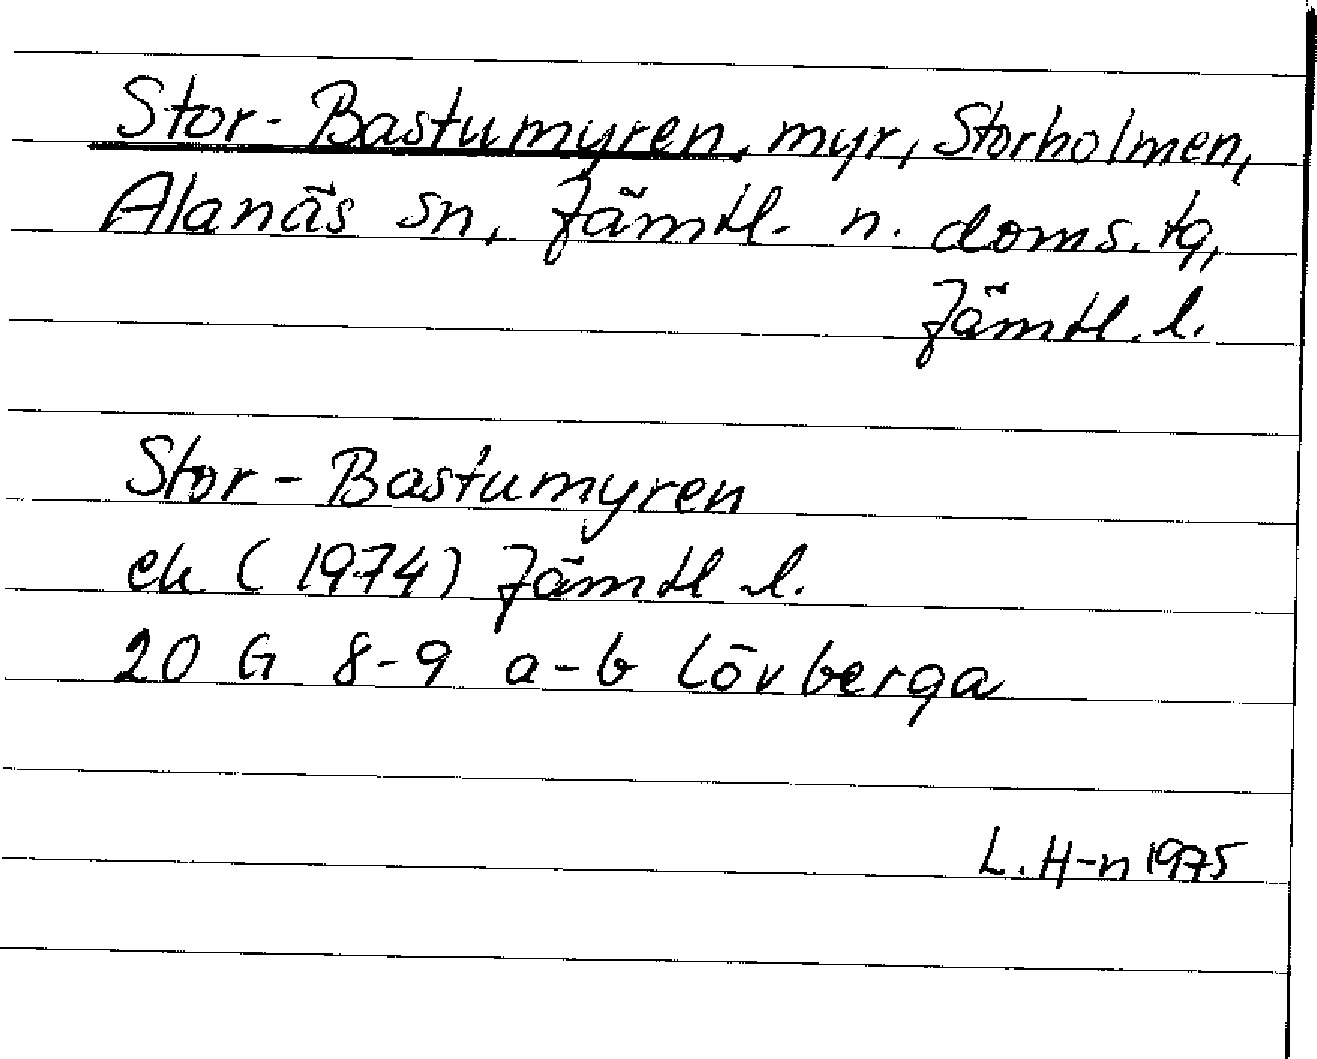 Stor-Bastumyren, myr, Storholmen,
Alanäs sn, Jämtl. n. doms. tg,
Jämtl. l.
Stor-Bastumyren
ek (1974) Jämtl l.
20 G 8-9 a-b Lövberga
L. H-n 1975